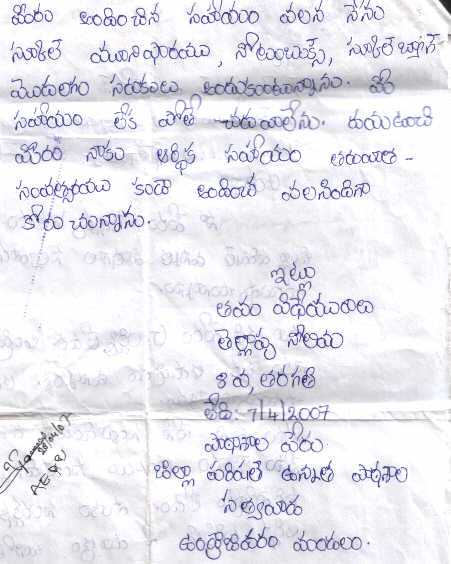 మీరు అందించిన సహాయం వలన నేను
స్కూల్ యూనిఫారము, నోటుబుక్స్, స్కూల్ బ్యాగ్
మొదలగు సరుకులు అందుకుంటున్నాను. మీ
సహాయం లేక పోతే చదువలేను. దయ ఉంచి
మీరు నాకు ఆర్థిక సహాయం తరువాత
సంవత్సరము కూడా అందించ వలసిందిగా
కోరు చున్నాను.
ఇట్లు
తమ విధేయురాలు
8 వ, తరగతి
తేది: 7/4/2007
పాఠశాల పేరు
జిల్లా పరిషత్ ఉన్నత పాఠశాల
సత్యవాడ
ఉండ్రాజవరం మండలం.